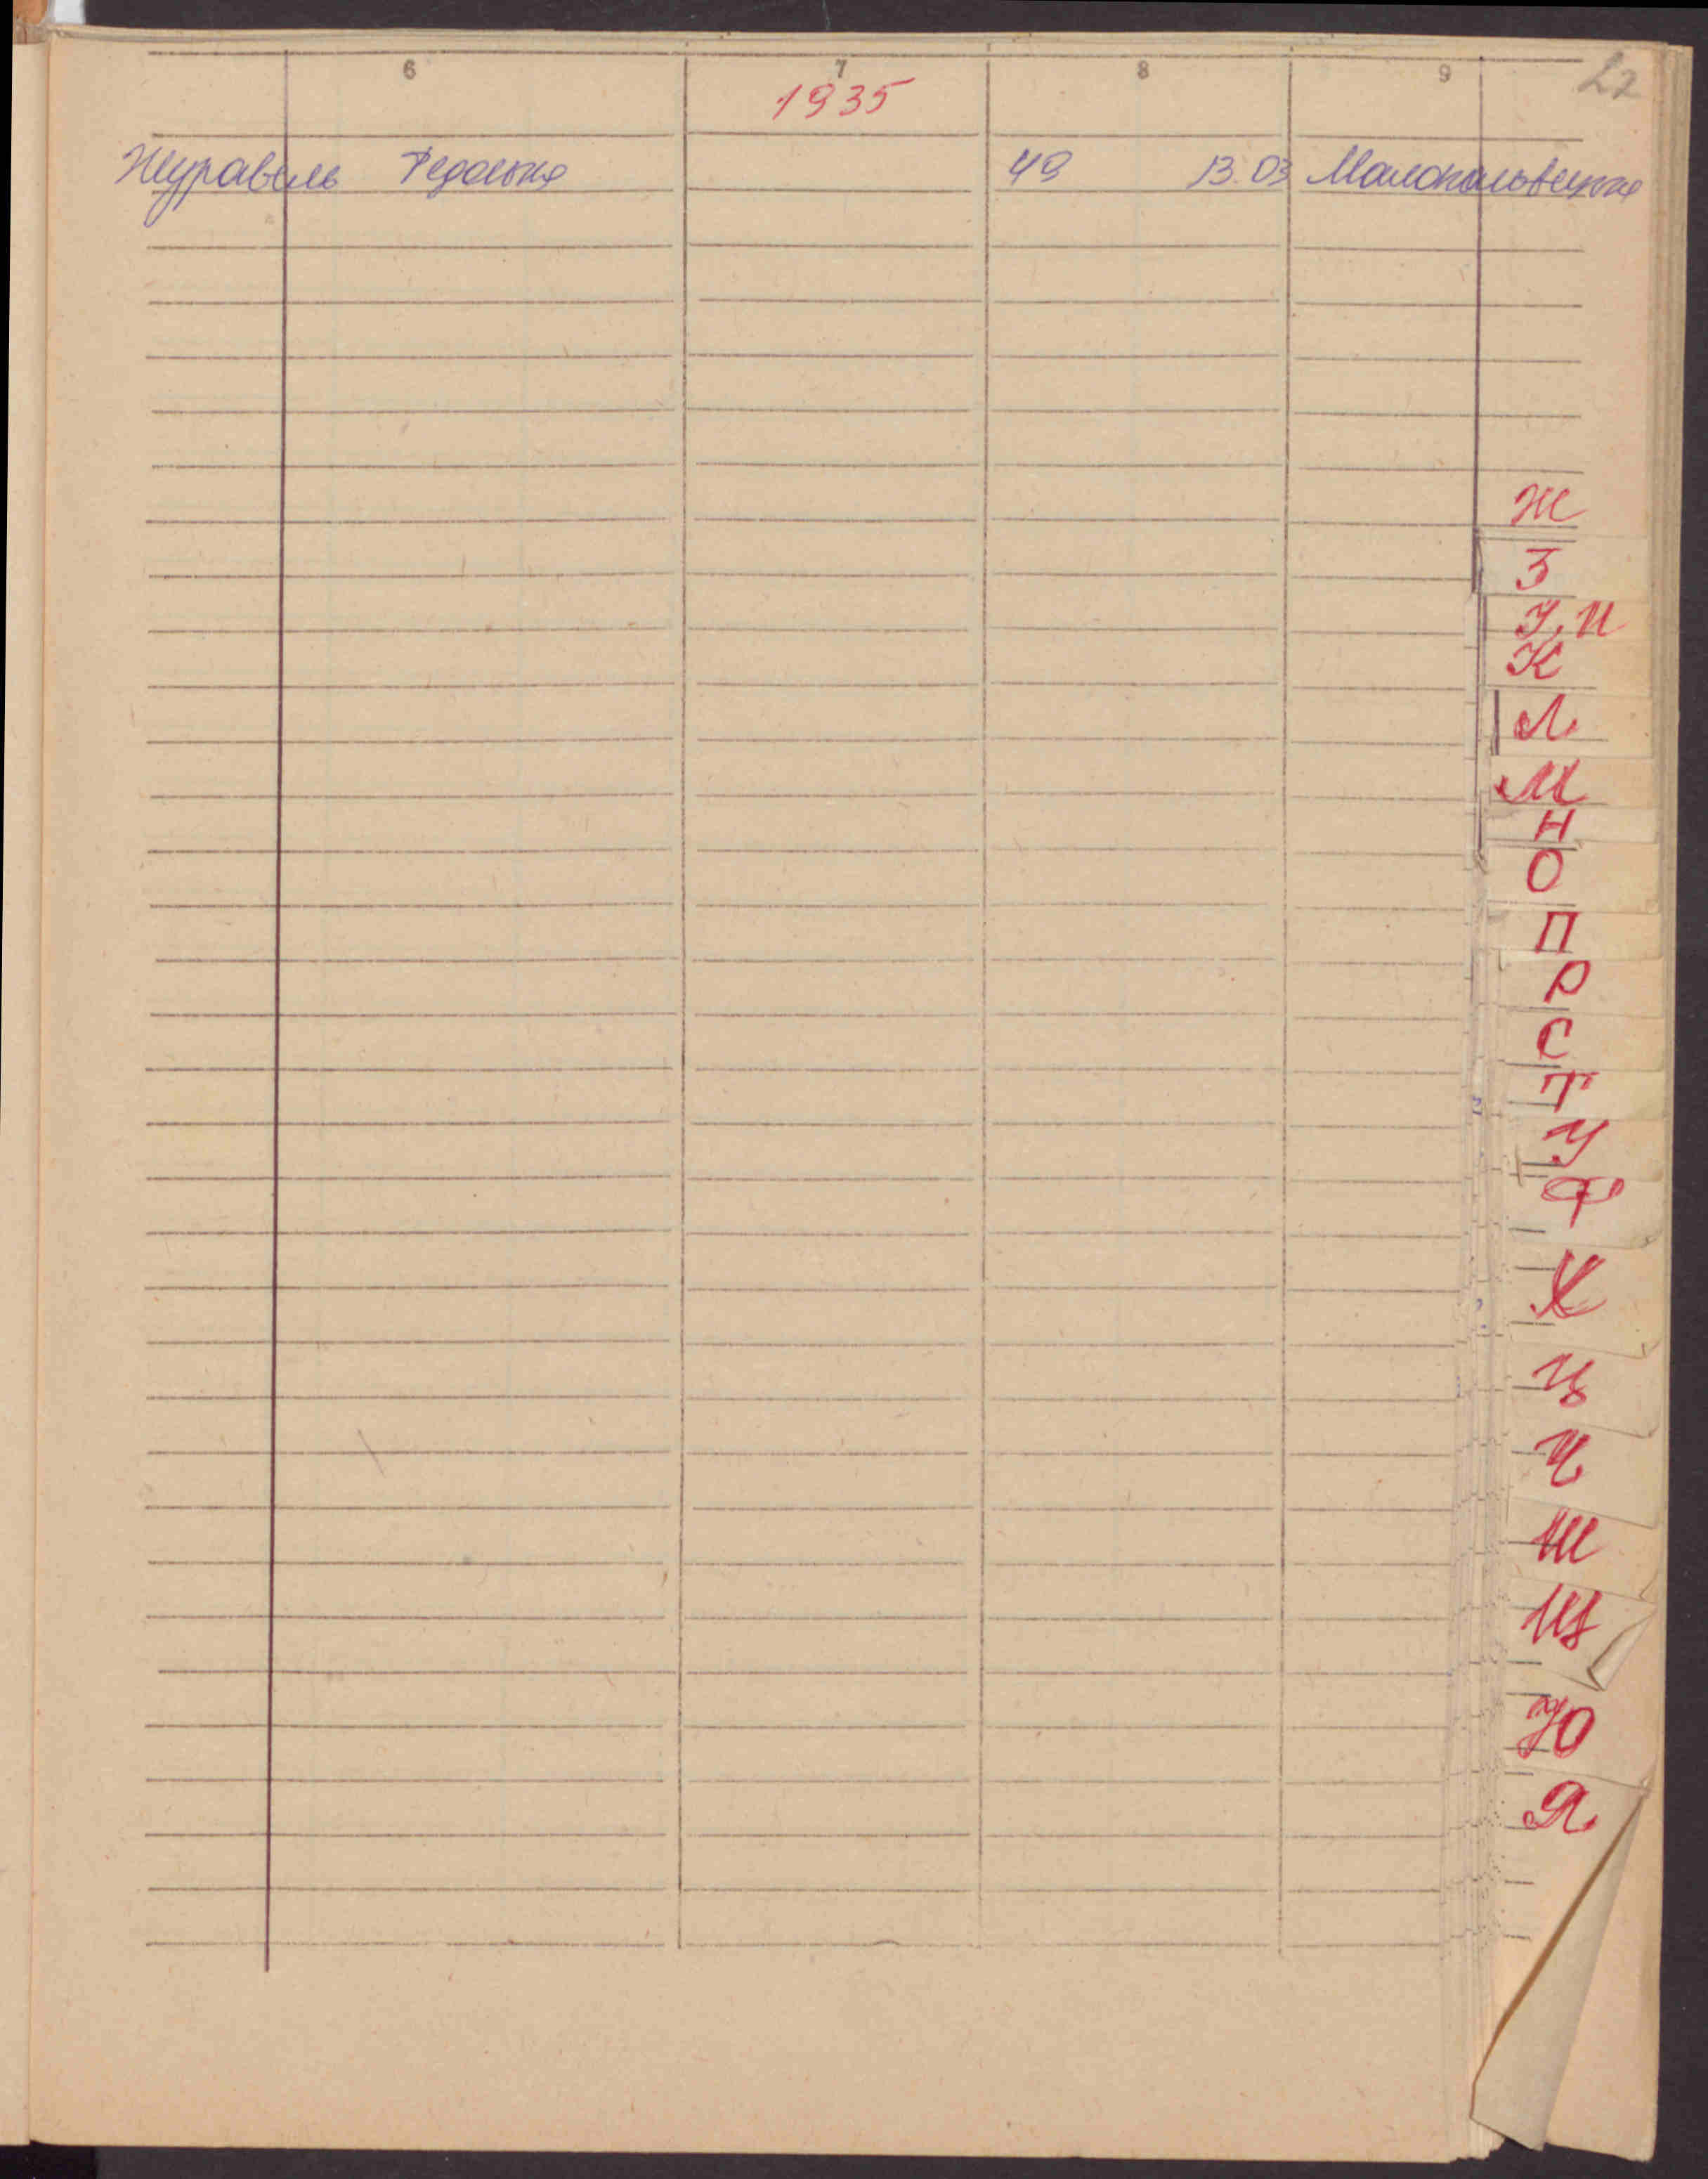 6 7 8 9 22
1935
Журавель Федоська 49 13.03 Малополовецька
Ж
З
І, И
К
Л
М
Н
О
П
Р
С
Т
У
Ф
Х
Ц
Ч
Ш
Щ
Ю
Я